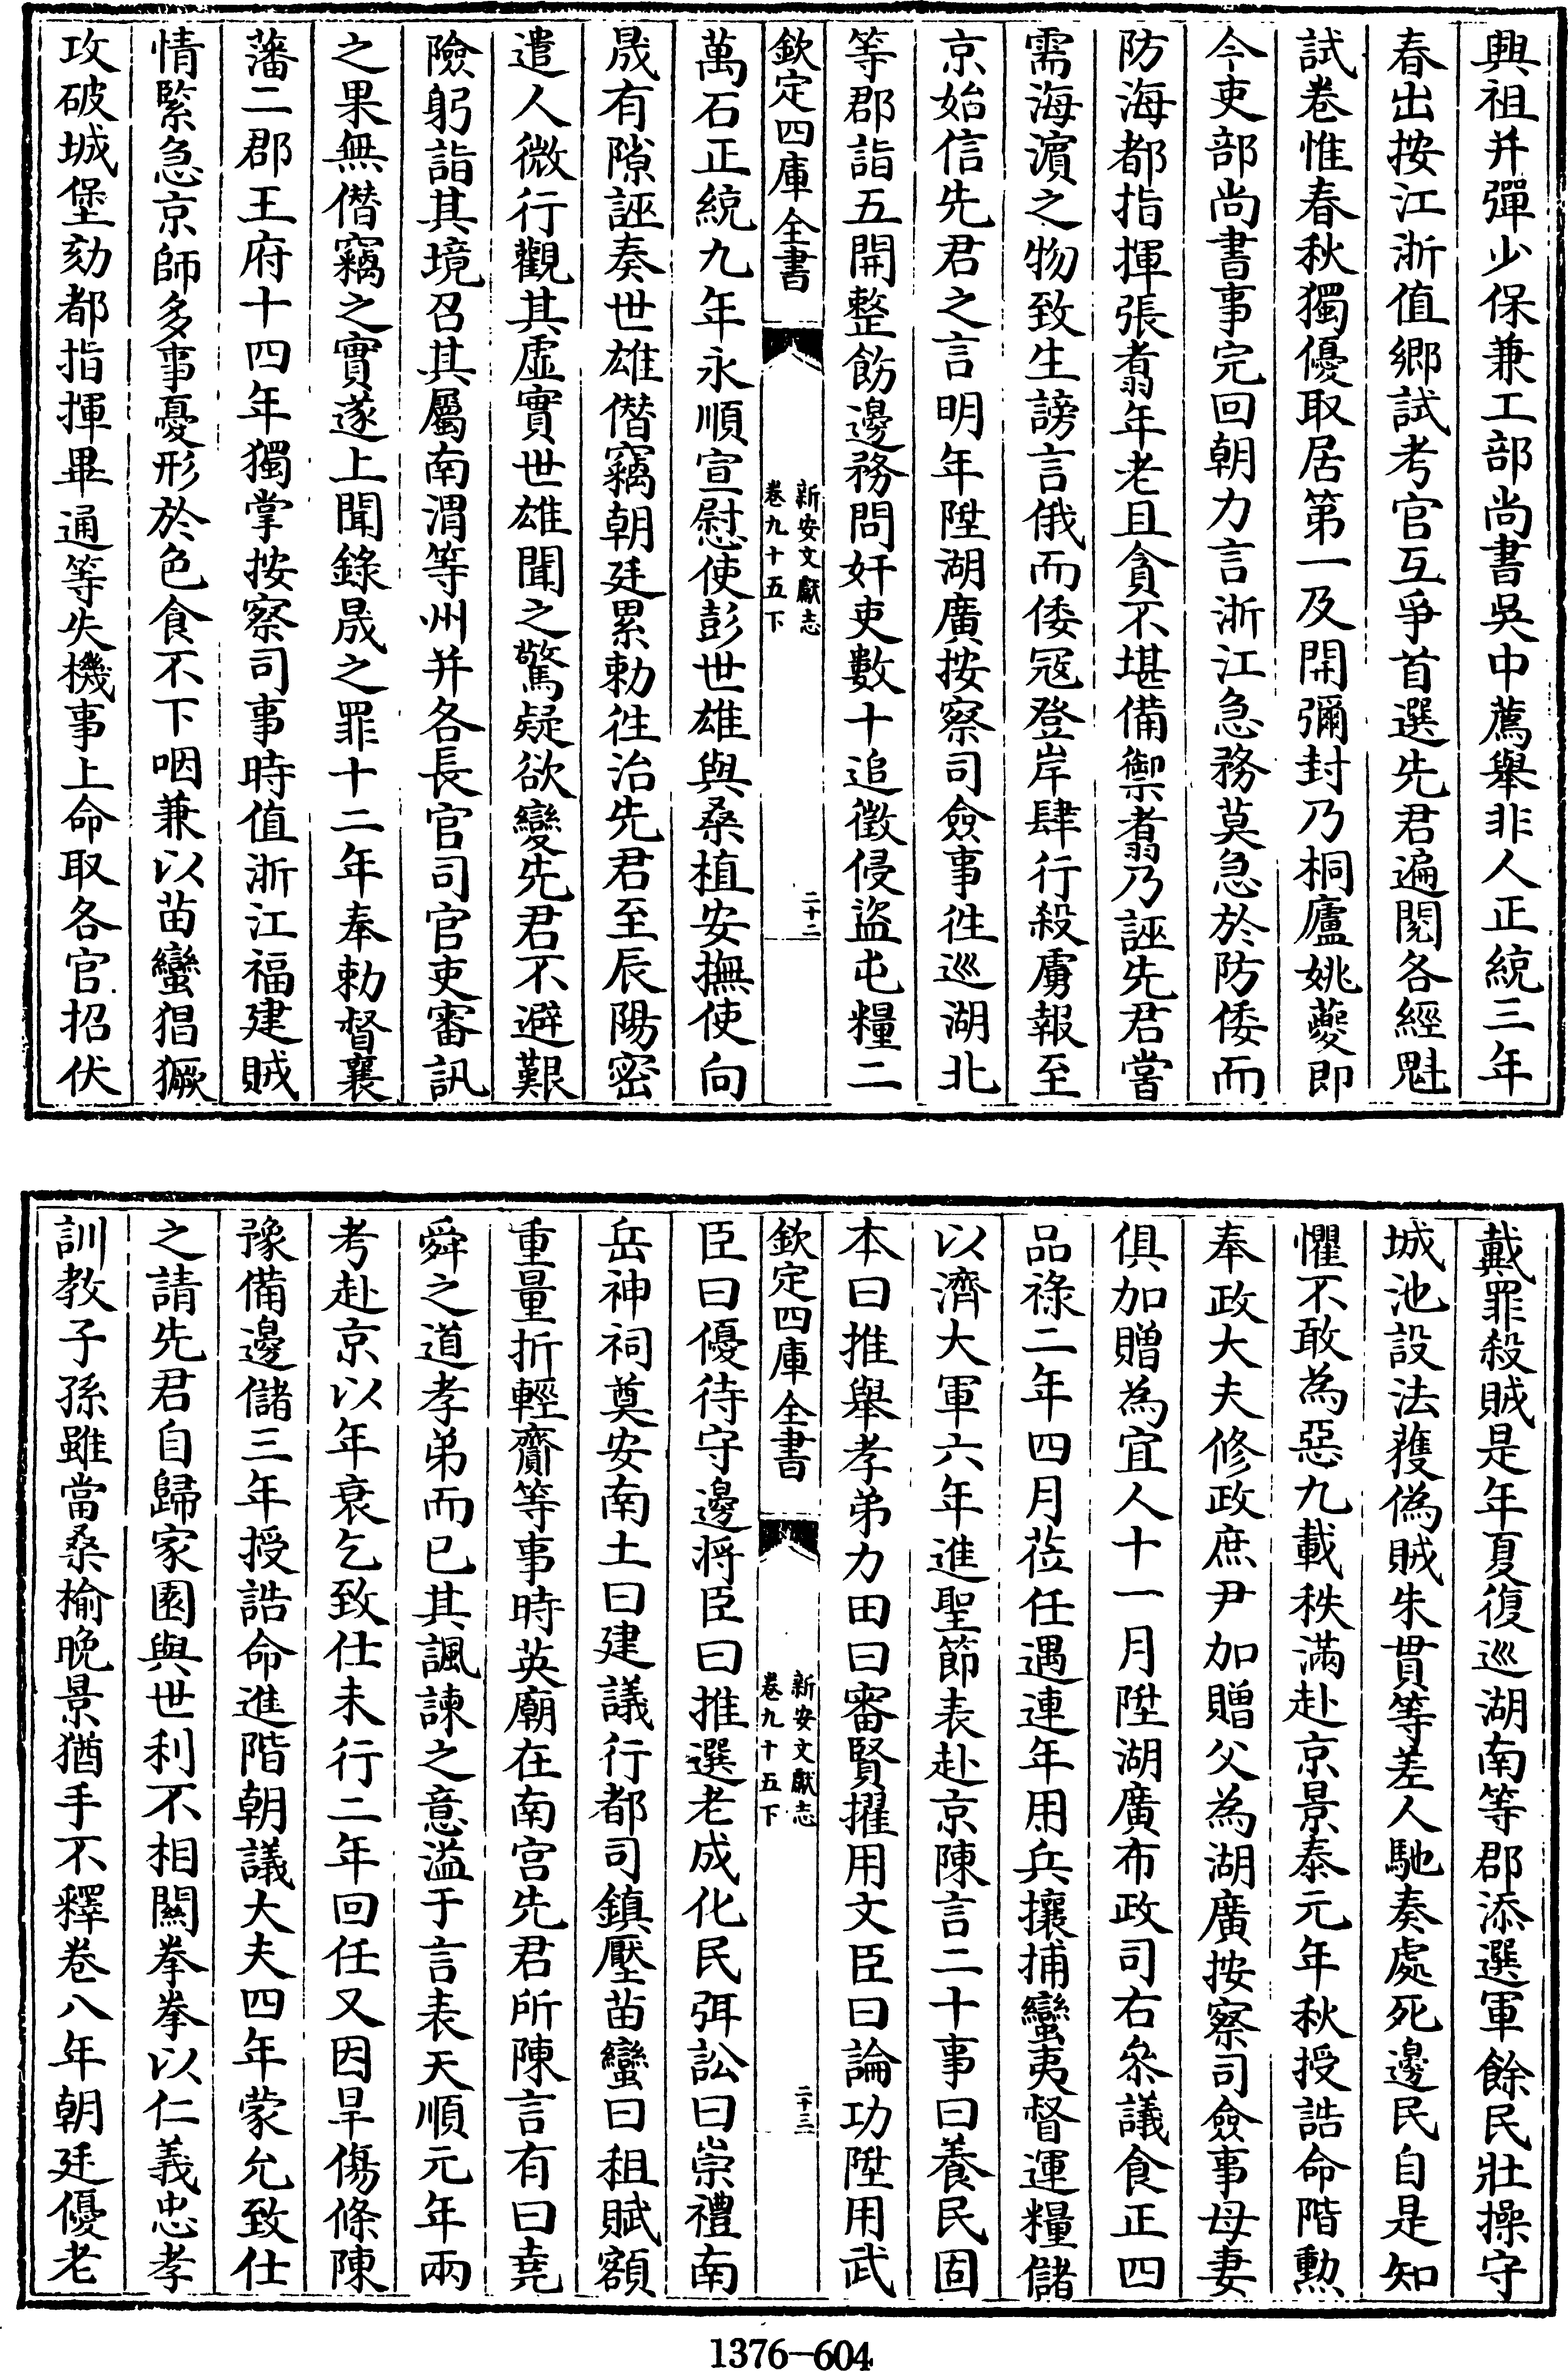 興祖并彈少保兼工部尚書吳中薦舉非人正統三年
春出按江浙值鄉試考官互爭首選先君遍閱各經魁
試卷惟春秋獨優取居第一及開彌封乃桐廬姚夔即
今吏部尚書事完回朝力言浙江急務莫急於防倭而
防海都指揮張翥年老且貪不堪備禦翥乃誣先君嘗
需海濵之物致生謗言俄而倭冦登岸肆行殺虜報至
京始信先君之言明年陞湖廣按察司僉事徃巡湖北
等郡詣五開整飭邊務問奸吏數十追徵侵盜屯糧二
欽定四庫全書
新安文獻志
卷九十五下
二十二
萬石正統九年永順宣慰使彭世雄與桑植安撫使向
晟有隙誣奏世雄僭竊朝廷累勅徃治先君至辰陽密
遣人微行觀其虛實世雄聞之驚疑欲變先君不避艱
險躬詣其境召其屬南渭等州并各長官司官吏審訊
之果無僭竊之實遂上聞錄晟之罪十二年奉勅督襄
藩二郡王府十四年獨掌按察司事時值浙江福建賊
情緊急京師多事憂形於色食不下咽兼以苗蠻猖獗
攻破城堡劾都指揮畢通等失機事上命取各官招伏
戴罪殺賊是年夏復巡湖南等郡添選軍餘民壯操守
城池設法獲偽賊朱貫等差人馳奏處死邊民自是知
懼不敢為惡九載秩滿赴京景泰元年秋授誥命階勲
奉政大夫修政庶尹加贈父為湖廣按察司僉事母妻
俱加贈為宜人十一月陞湖廣布政司右叅議食正四
品祿二年四月莅任遇連年用兵攘捕蠻夷督運糧儲
以濟大軍六年進聖節表赴京陳言二十事曰養民固
本曰推舉孝弟力田曰審賢擢用文臣曰論功陞用武
欽定四庫全書
新安文獻志
卷九十五下
二十三
臣曰優待守邊将臣曰推選老成化民弭訟曰崇禮南
岳神祠奠安南土曰建議行都司鎮壓苗蠻曰租賦額
重量折輕齎等事時英廟在南宫先君所陳言有曰堯
舜之道孝弟而已其諷諫之意溢于言表天順元年兩
考赴京以年衰乞致仕未行二年回任又因旱傷條陳
豫備邊儲三年授誥命進階朝議大夫四年蒙允致仕
之請先君自歸家園與世利不相關拳拳以仁義忠孝
訓教子孫雖當桑榆晚景猶手不釋卷八年朝廷優老
1376-604